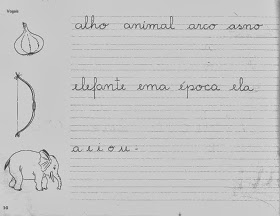 Vogais
alho animal arco asno
elefante ema época ela.
a e i o u.